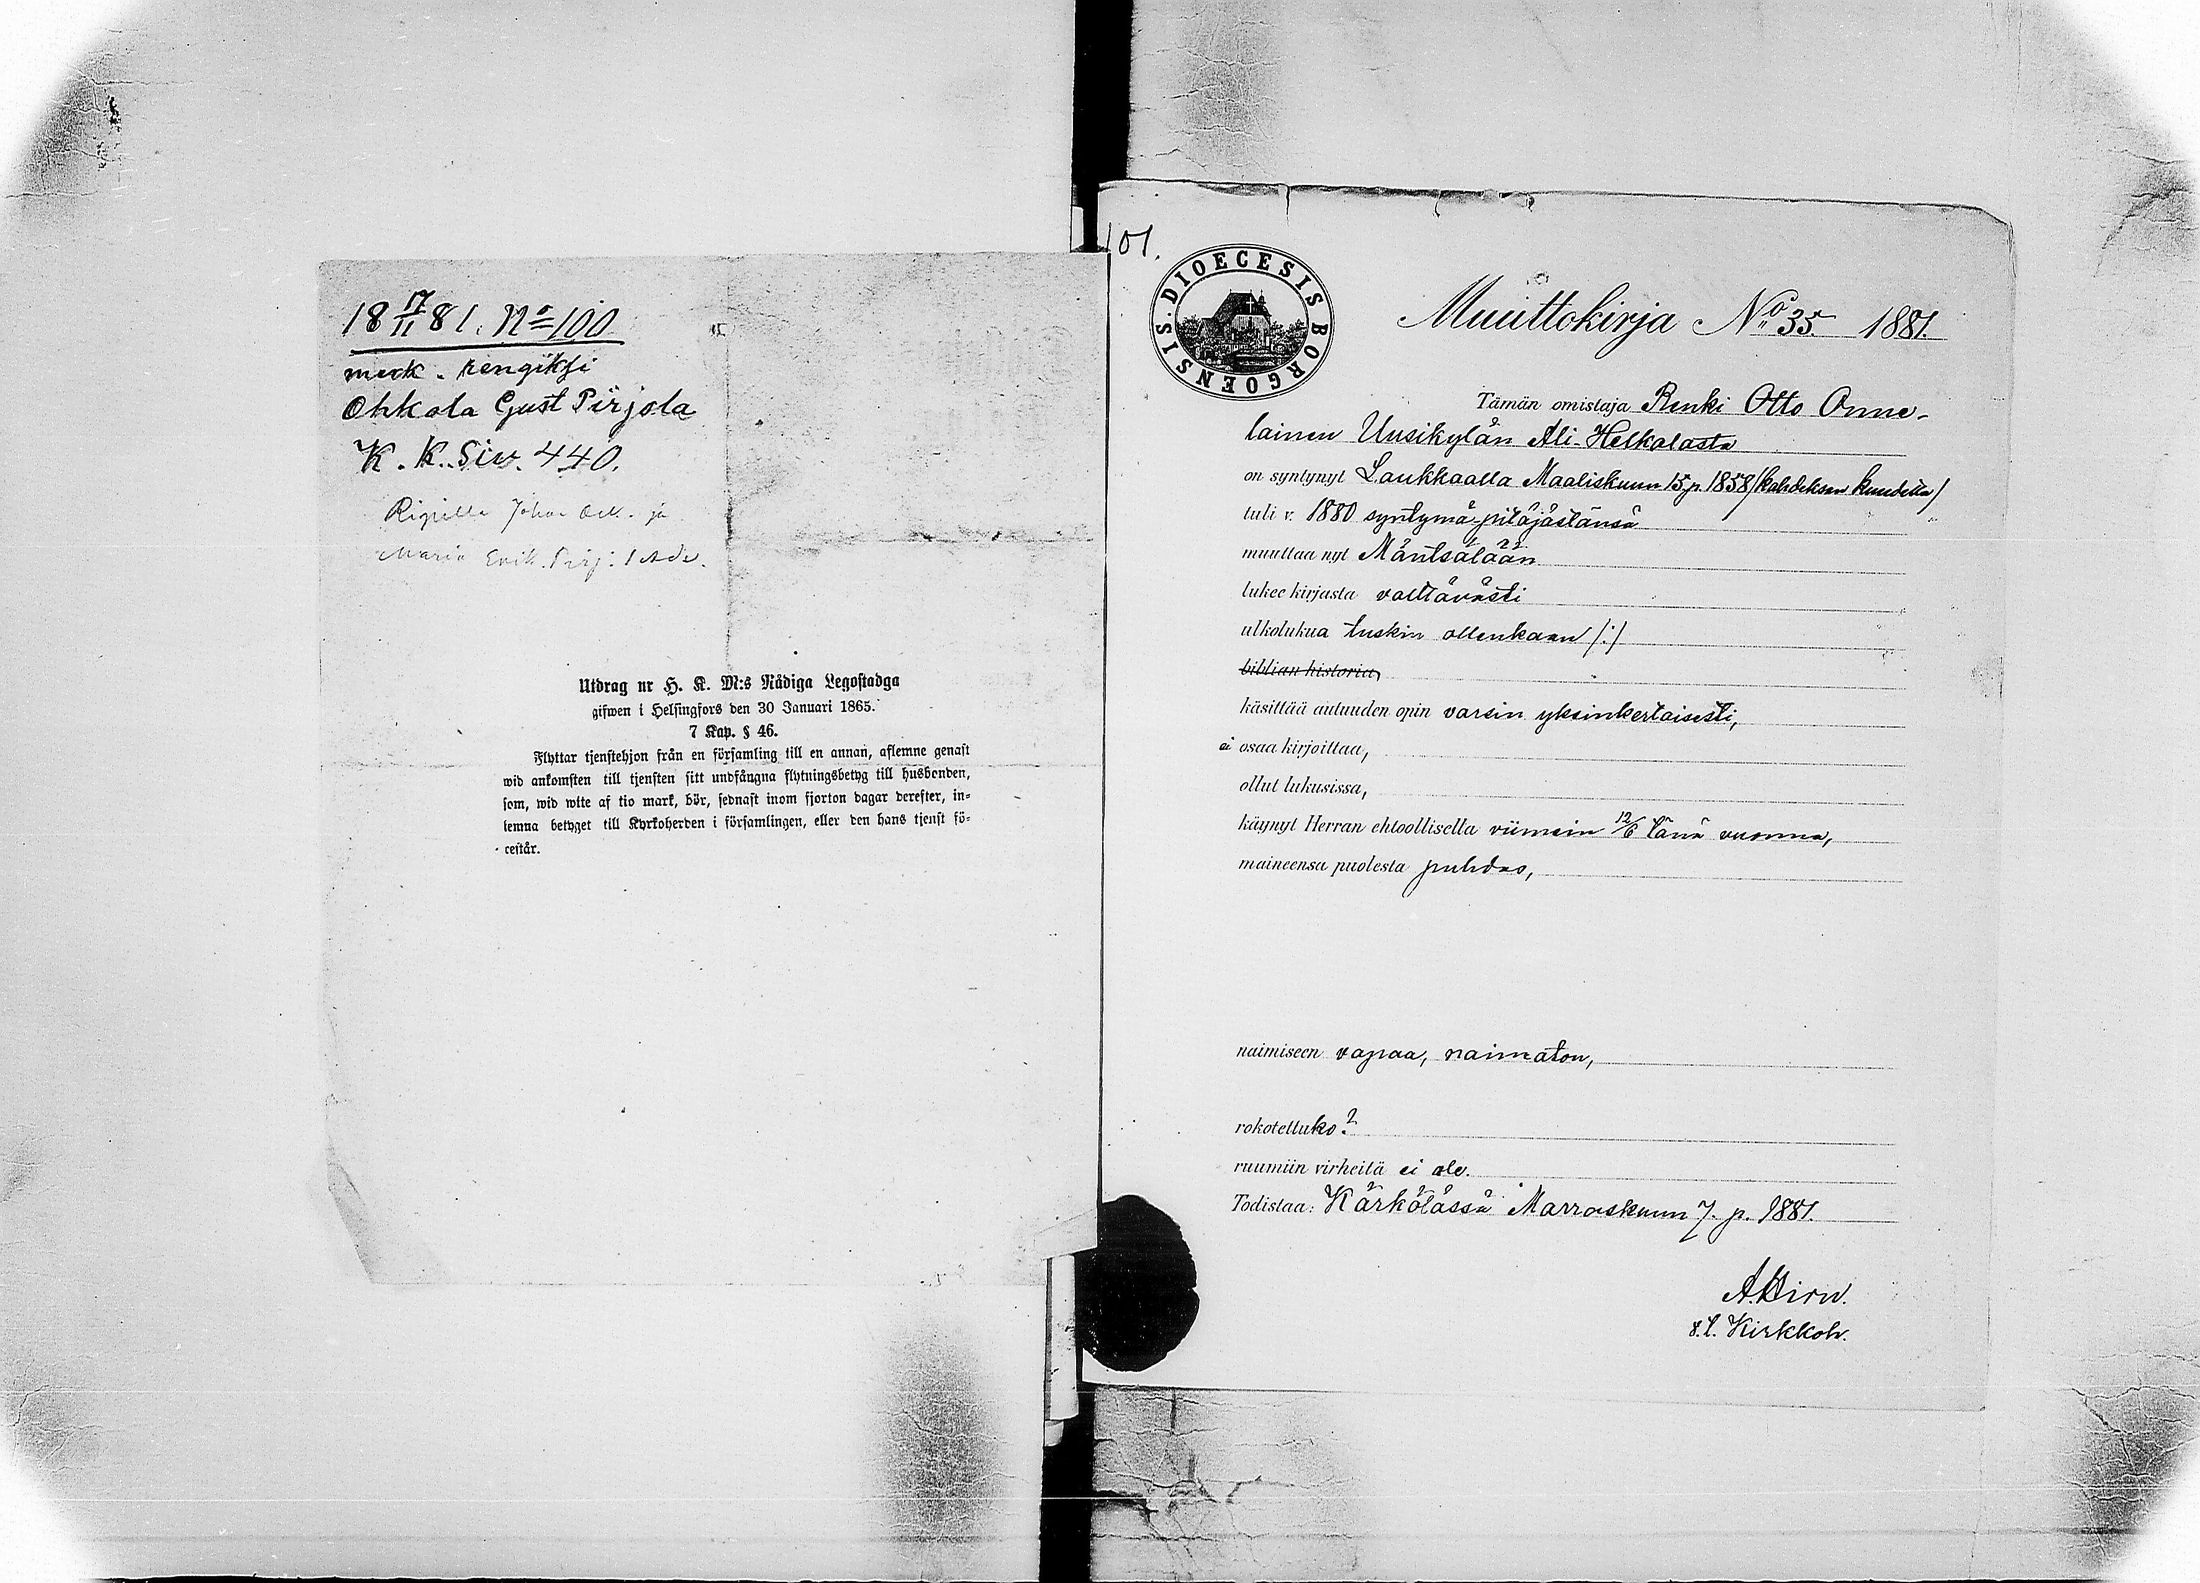 18 17/11 81. No 100
merk. rengiksi
Ohkola Gust Pirjola
K. K. Siv. 440.
Ripilla Johan ja
Maria Erik. Pirj:
Utdrag nr H. K. M:s Nådiga Legostadga
gifwen i Helsingfors den 30 Januari 1865.
7 Kap. § 46.
Flyttar tjenstehjon från en församling till en annan, aflemne genast
wid ankomsten till tjensten sitt undfångna flytningsbetyg till husbonden,
som, wid wite af tio mark, bör, sednast inom fjorton dagar derefter, in-
lemna betyget till Kyrkoherden i församlingen, eller den hans tjenst fö-
restår.
101.
DIOECESIS BORGOENSIS.
Muuttokirja No 35. 1881.
Tämän omistaja Renki Otto Onne-
lainen Uusikylän Ali-Helkalasta
on syntynyt Laukkaalla Maaliskuun 15 p. 1858 /kahdeksan kuudetta/
tuli v. 1880 syntymä-pitäjästänsä
muuttaa nyt Mäntsälään
lukee kirjasta välttävästi
ulkolukua tuskin ollenkaan /:/
biblian historia,
käsittää autuuden opin varsin yksinkertaisesti,
ei osaa kirjoittaa,
ollut lukusissa,
käynyt Herran ehtoollisella viimein 12/6 tänä vuonna,
maineensa puolesta puhdas,
naimiseen vapaa, naimaton,
rokotettuko?
ruumiin virheitä ei ole.
Todistaa: Kärkölässä Marraskuun 7. p. 1881.
A. Hirn.
v.t. Kirkkoh.